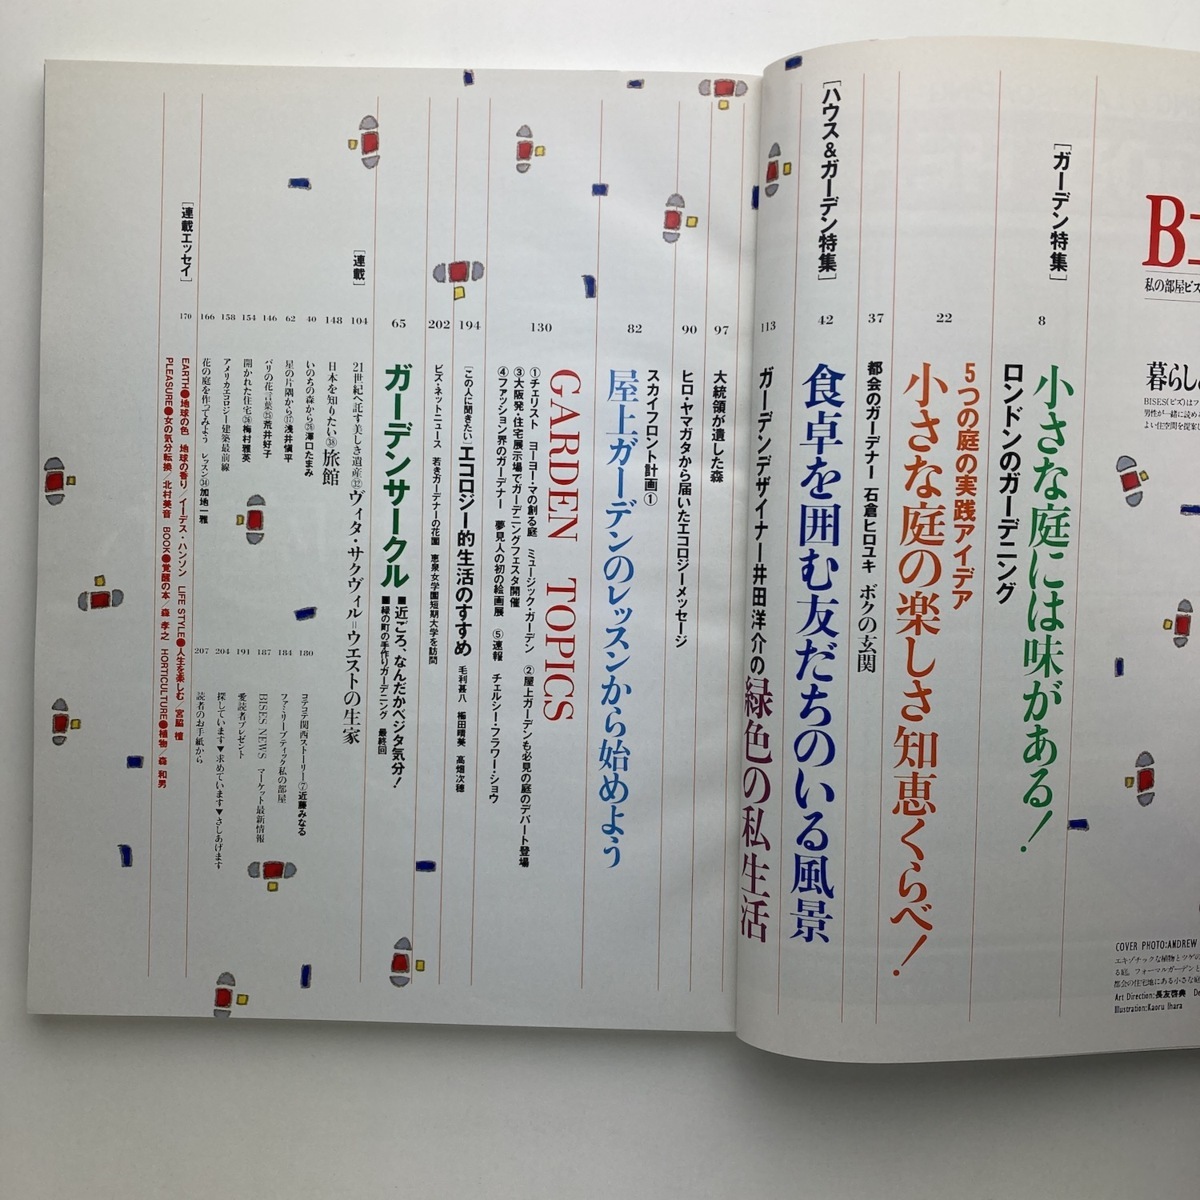 私の部屋ビズ
暮らし
BISES(ビズ)は
男性が一緒に読め
よい住空間を提案し
COVER PHOTO:ANDREW
エキゾチックな植物とツゲの
る庭。フォーマルガーデンと
都会の住宅地にある小さな庭
Art Direction:長友啓典 De
Illustration:Kaoru Ihara
[ガーデン特集]
8
小さな庭には味がある！
ロンドンのガーデニング
22
5つの庭の実践アイデア
小さな庭の楽しさ知恵くらべ！
37
都会のガーデナー 石倉ヒロユキ ボクの玄関
[ハウス&ガーデン特集]
42
食卓を囲む友だちのいる風景
113
ガーデンデザイナー井田洋介の緑色の私生活
97
大統領が遺した森
90
ヒロ・ヤマガタから届いたエコロジーメッセージ
82
スカイフロント計画①
屋上ガーデンのレッスンから始めよう
130
GARDEN TOPICS
①チェリスト ヨーヨー・マの創る庭 ミュージック・ガーデン ②屋上ガーデンも必見の庭のデパート登場
③大阪発・住宅展示場でガーデニングフェスタ開催
④ファッション界のガーデナー 夢見人の初の絵画展 ⑤速報 チェルシー・フラワー・ショウ
194
[この人に聞きたい]エコロジー的生活のすすめ 毛利甚八 梅田晴美 高畑次穂
202
ビズ・ネットニュース 若きガーデナーの花園 恵泉女学園短期大学を訪問
65
ガーデンサークル ■近ごろ、なんだかベジタ気分！
■緑の町の手作りガーデニング 最終回
[連載]
104
21世紀へ託す美しき遺産㉜ヴィタ・サクヴィル=ウエストの生家
148
日本を知りたい㊳旅館
40
いのちの森から㉘澤口たまみ
62
星の片隅から⑰浅井愼平
146
パリの花言葉㉝荒井好子
154
開かれた住宅㉖梅村雅英
158
アメリカエコロジー建築最前線
166
花の庭を作ってみよう レッスン㉞加地一雅
180
コテコテ関西ストーリー⑦近藤みなる
184
ファミリーブティック私の部屋
187
BISES NEWS マーケット最新情報
191
愛読者プレゼント
204
探しています▼求めています▼さしあげます
207
読者のお手紙から
[連載エッセイ]
170
EARTH●地球の色 地球の香り/イーデス・ハンソン LIFE STYLE●人生を楽しむ/宮脇 檀
PLEASURE●女の気分転換/北村美香 BOOK●覚醒の本/森 孝之 HORTICULTURE●植物/森 和男